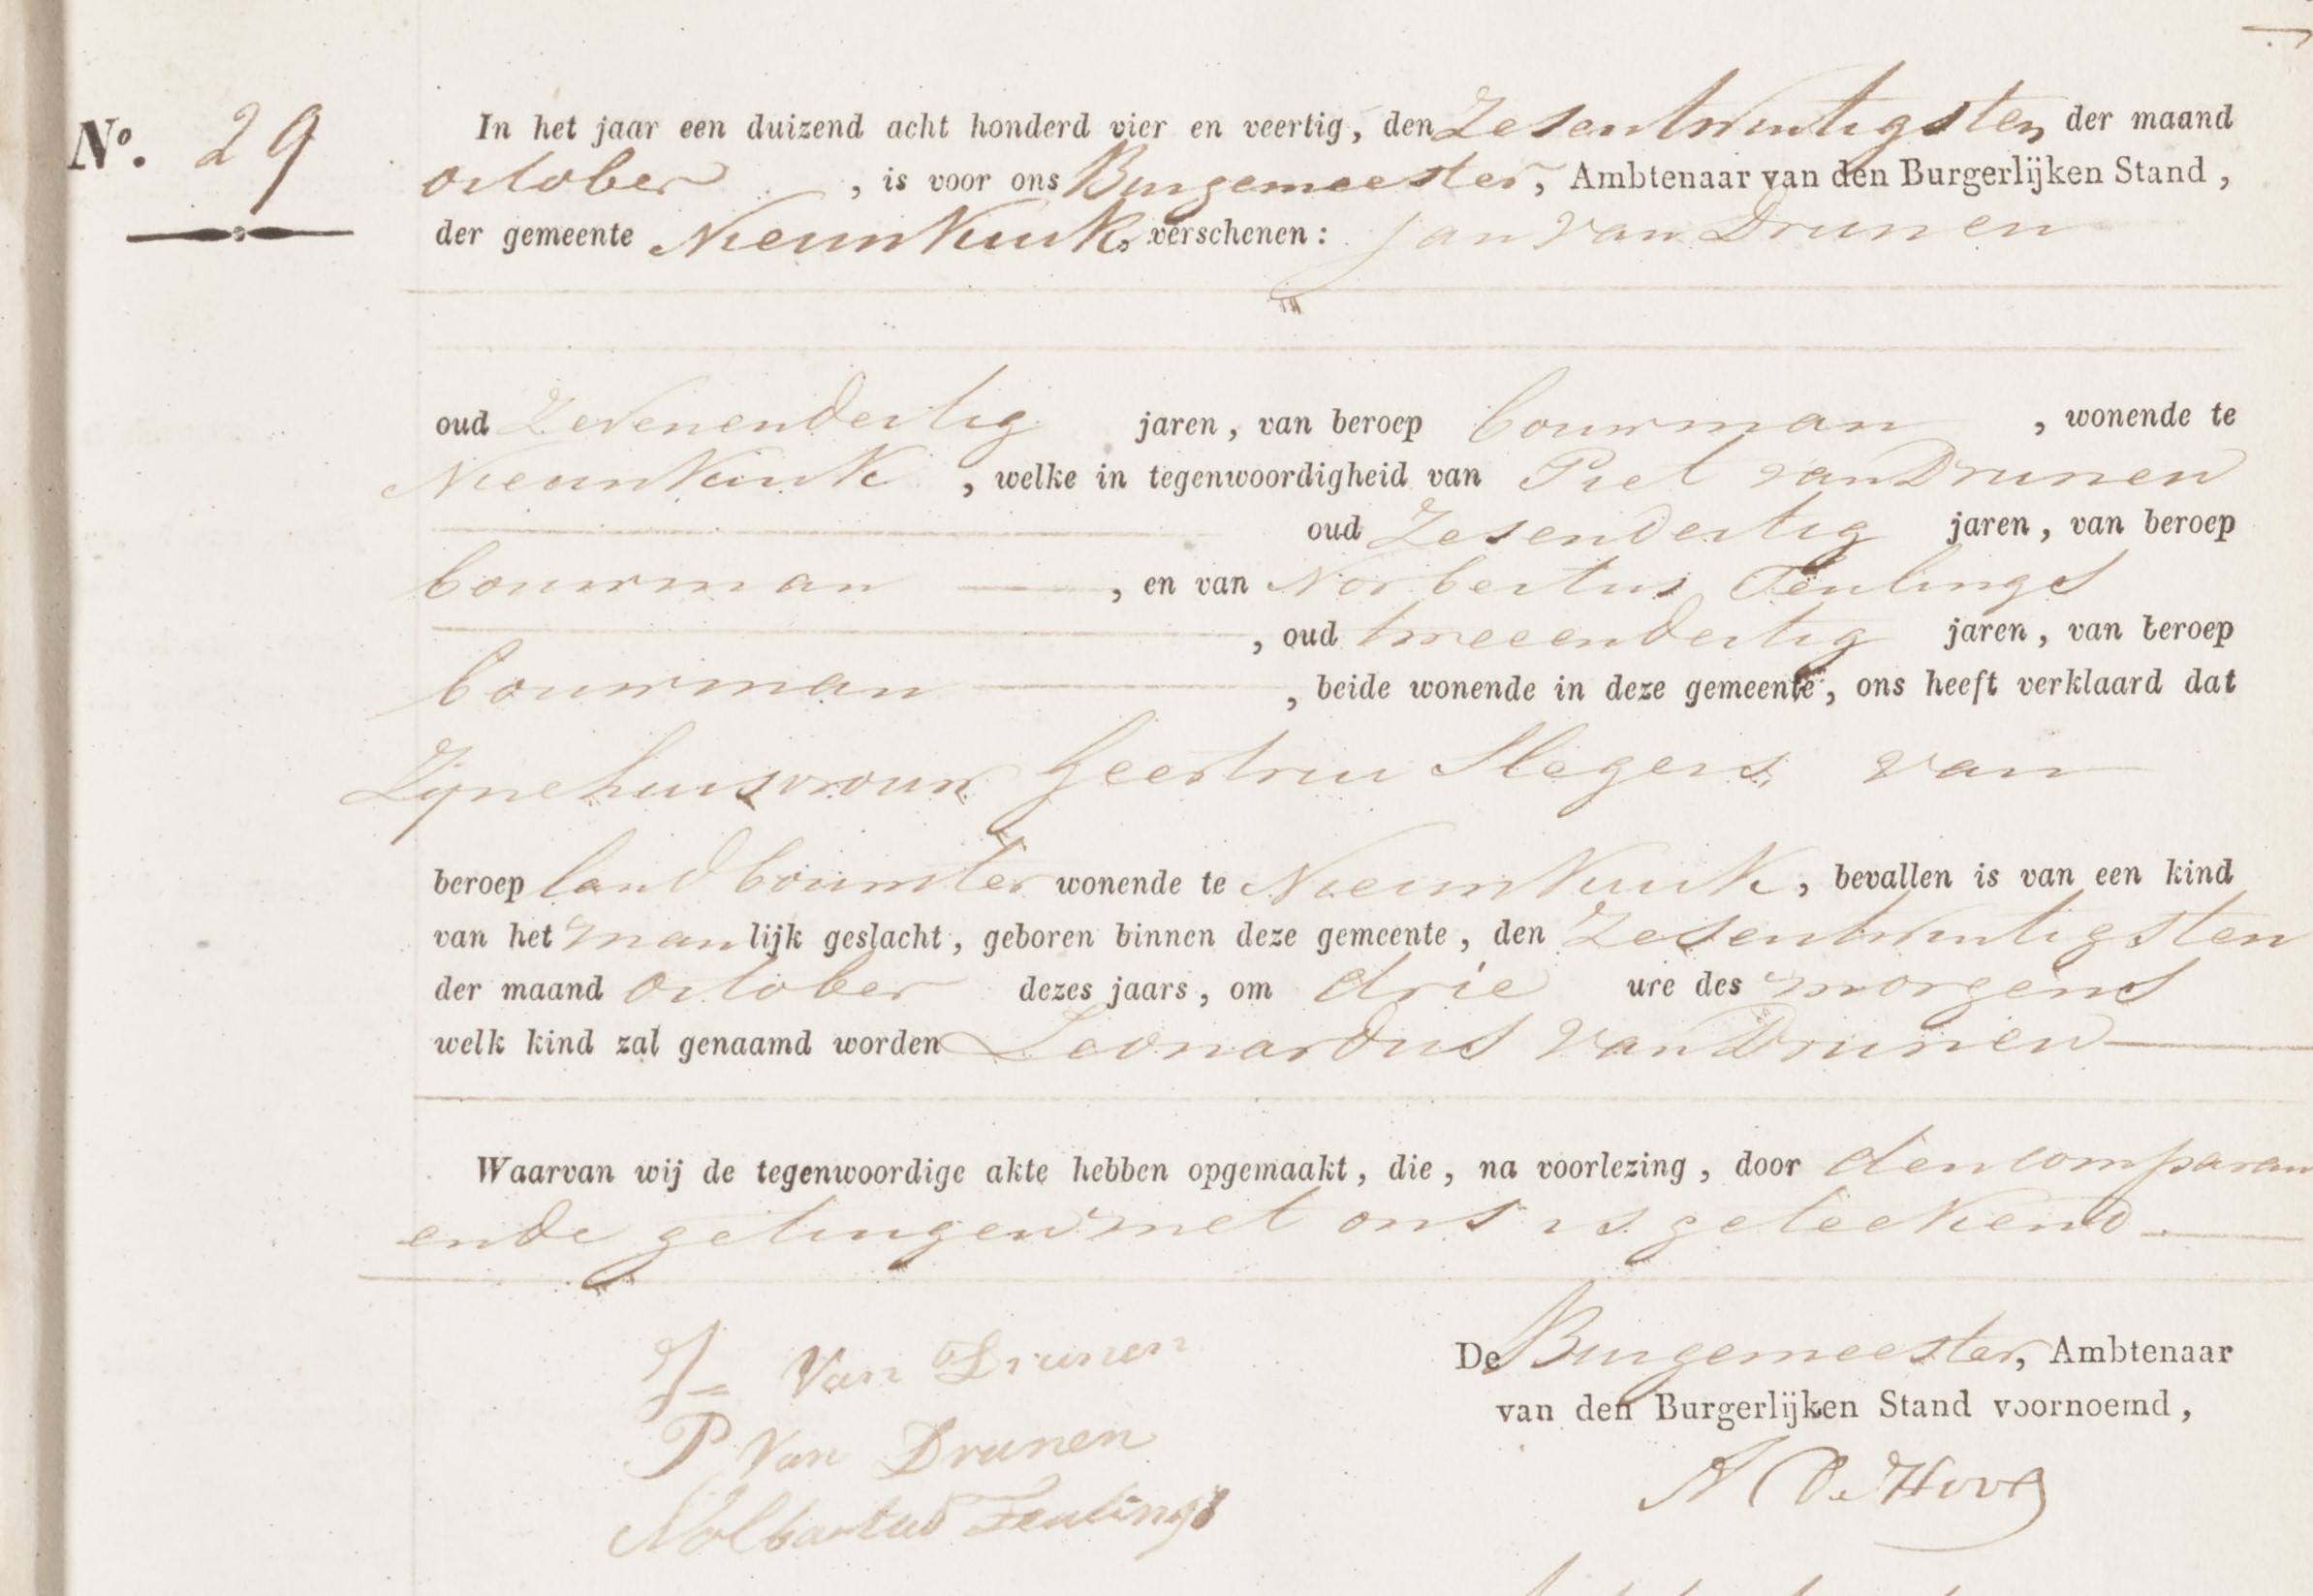 No. 29
In het jaar een duizend acht honderd vier en veertig, den Zesentwintigsten der maand
october , is voor ons Burgemeester, Ambtenaar van den Burgerlijken Stand,
der gemeente Nieuwkuik, verschenen: Jan van Drunen
oud Zevenendertig jaren, van beroep bouwman , wonende te
Nieuwkuik , welke in tegenwoordigheid van Piet van Drunen
oud Zesendertig jaren, van beroep
bouwman , en van Norbertus Teulings
, oud tweeendertig jaren, van beroep
bouwman , beide wonende in deze gemeente, ons heeft verklaard dat
Zijne huisvrouw Geertrui Slegers, van
beroep landbouwster wonende te Nieuwkuik, bevallen is van een kind
van het manlijk geslacht, geboren binnen deze gemeente, den Zesentwintigsten
der maand october dezes jaars, om drie ure des morgens
welk kind zal genaamd worden Leonardus van Drunen
Waarvan wij de tegenwoordige akte hebben opgemaakt, die, na voorlezing, door den comparan
ende getuigen met ons is geteekend
J Van Drunen
De Burgemeester, Ambtenaar
van den Burgerlijken Stand voornoemd,
P Van Drunen
Nolbartus Teulings